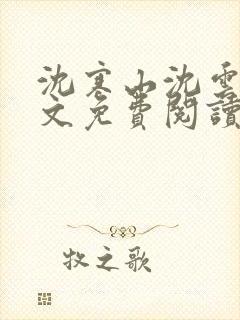 沈寒山沈雲
文免費閱讀
牧之歌